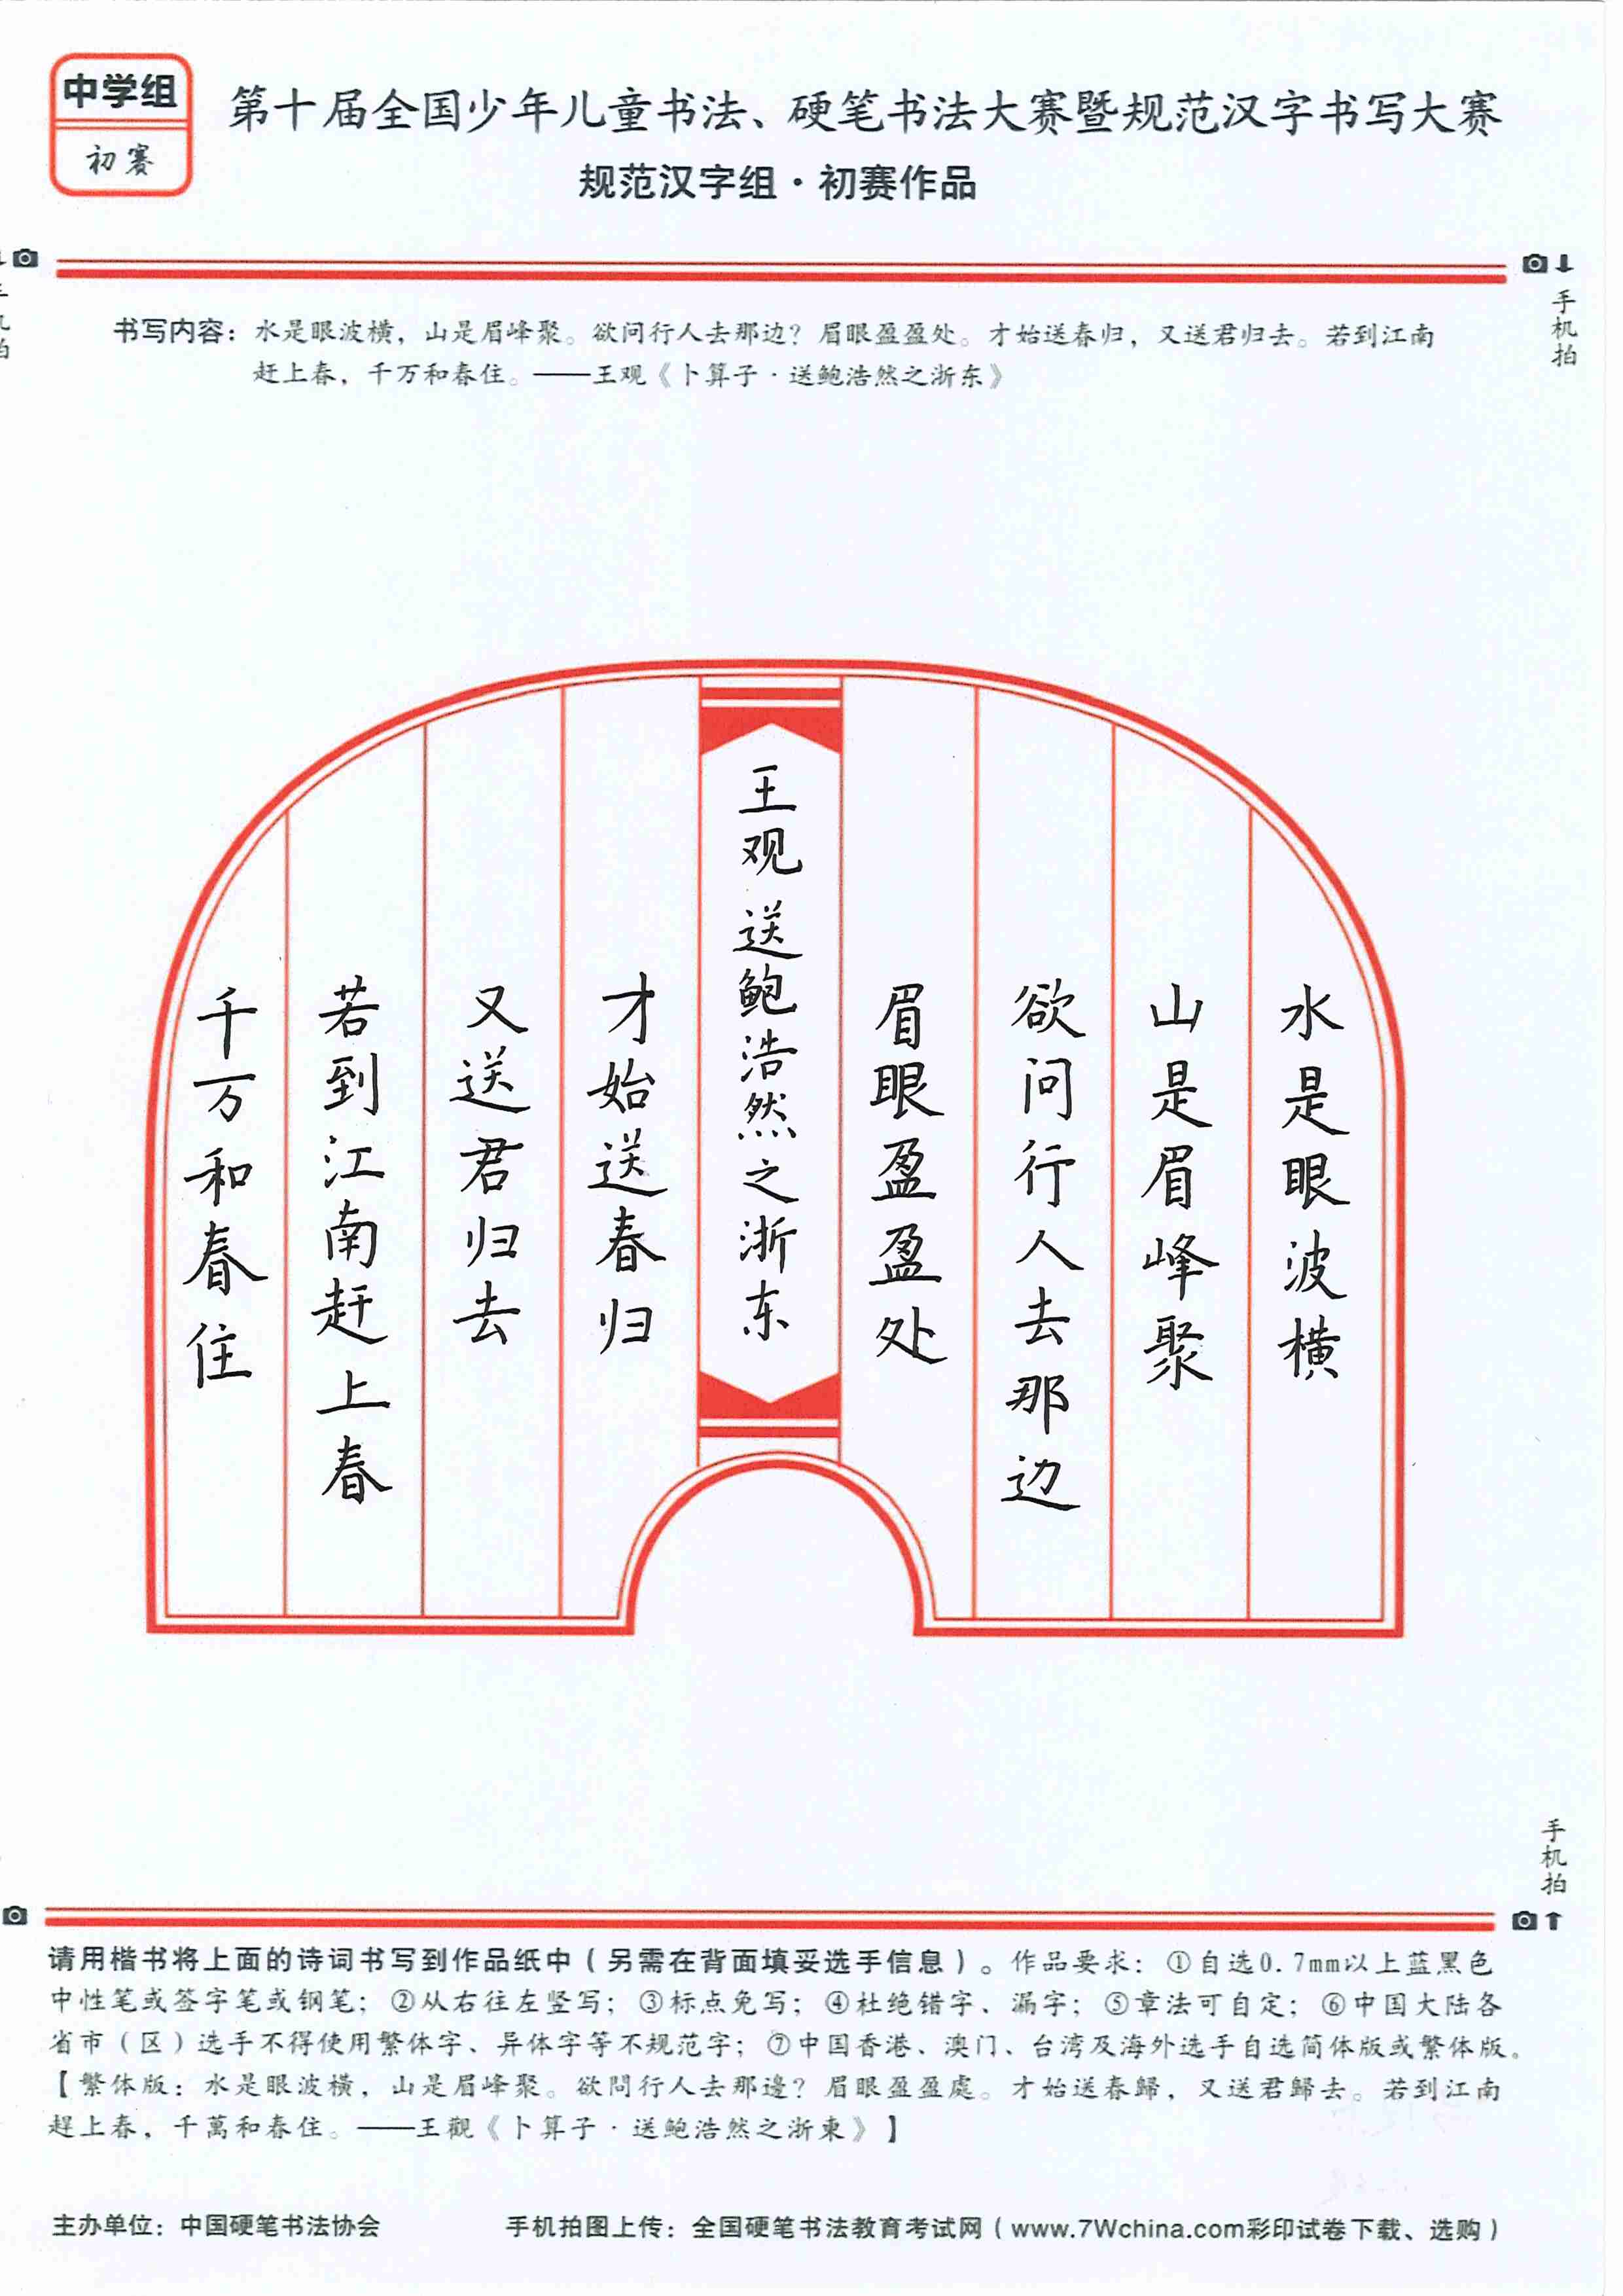 中学组
初赛
第十届全国少年儿童书法、硬笔书法大赛暨规范汉字书写大赛
规范汉字组·初赛作品
手机拍
书写内容：水是眼波横，山是眉峰聚。欲问行人去那边？眉眼盈盈处。才始送春归，又送君归去。若到江南
赶上春，千万和春住。——王观《卜算子·送鲍浩然之浙东》
水是眼波横
山是眉峰聚
欲问行人去那边
眉眼盈盈处
王观 送鲍浩然之浙东
才始送春归
又送君归去
若到江南赶上春
千万和春住
手机拍
请用楷书将上面的诗词书写到作品纸中（另需在背面填妥选手信息）。作品要求：①自选0.7mm以上蓝黑色
中性笔或签字笔或钢笔；②从右往左竖写；③标点免写；④杜绝错字、漏字；⑤章法可自定；⑥中国大陆各
省市（区）选手不得使用繁体字、异体字等不规范字；⑦中国香港、澳门、台湾及海外选手自选简体版或繁体版。
【繁体版：水是眼波横，山是眉峰聚。欲問行人去那邊？眉眼盈盈處。才始送春歸，又送君歸去。若到江南
趕上春，千萬和春住。——王觀《卜算子·送鮑浩然之浙東》】
主办单位：中国硬笔书法协会
手机拍图上传：全国硬笔书法教育考试网（www.7Wchina.com彩印试卷下载、选购）